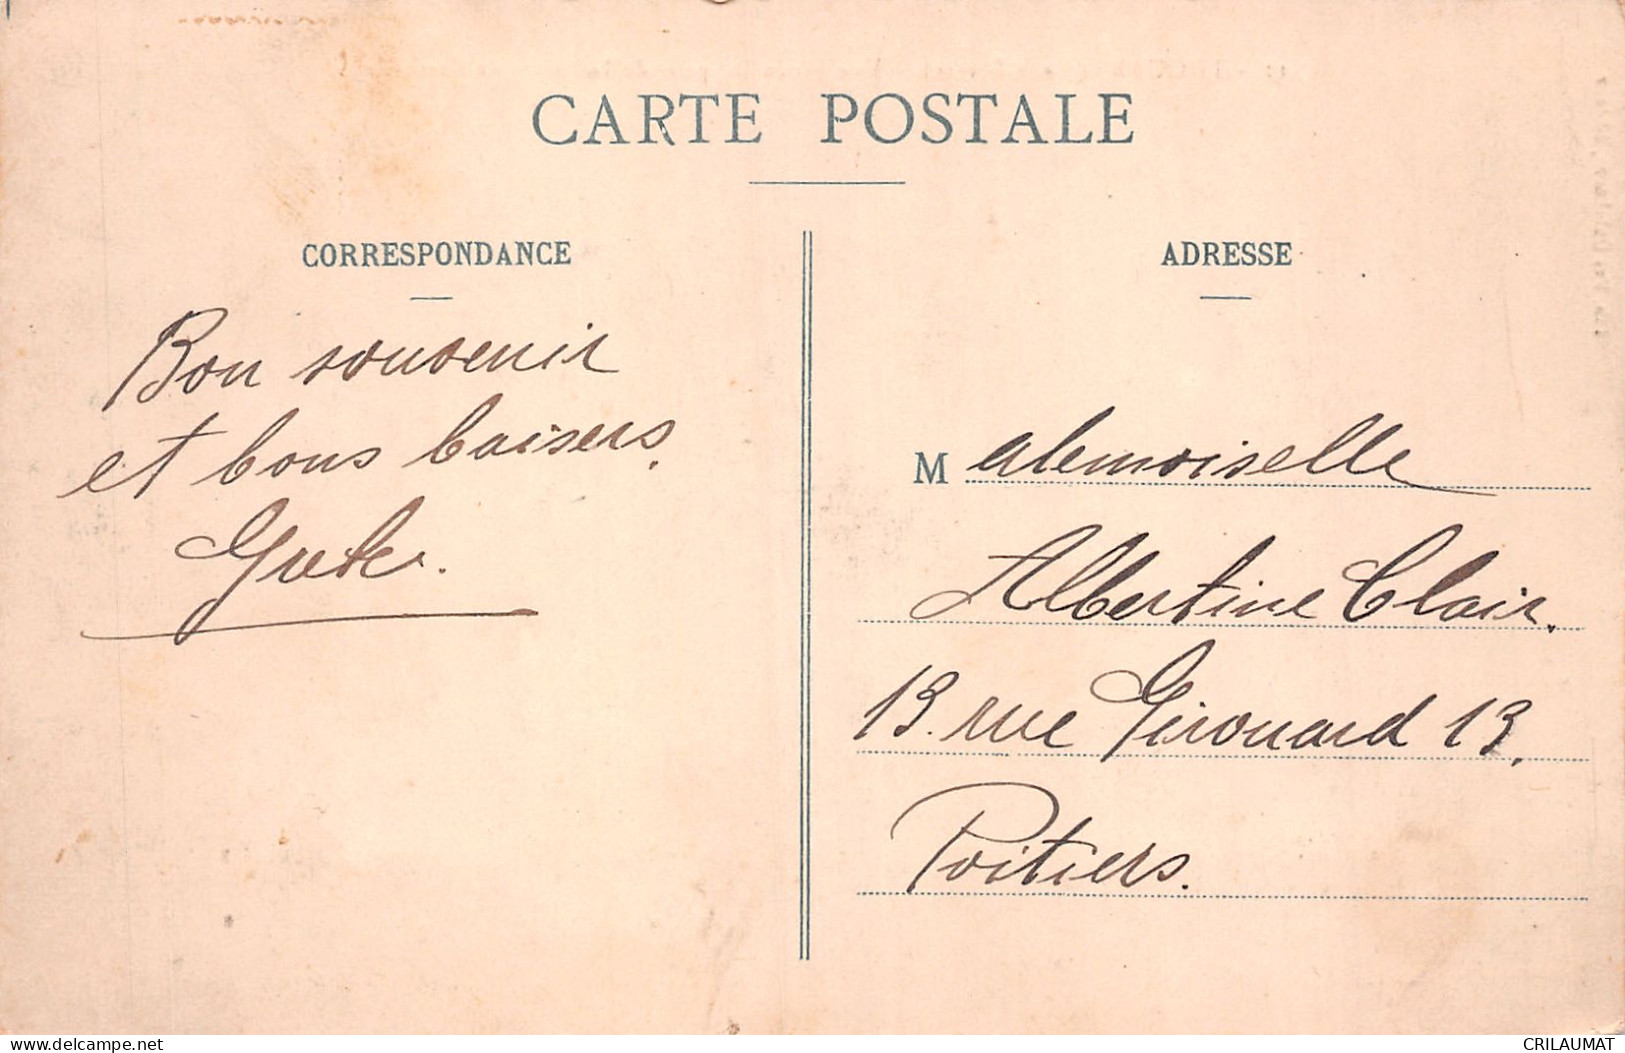 CARTE POSTALE
CORRESPONDANCE
Bon souvenir
et bons baisers.
ADRESSE
Mademoiselle
Albertine Clair.
13. rue Girouard 13.
Poitiers.
delcampe.net
CRILAUMAT